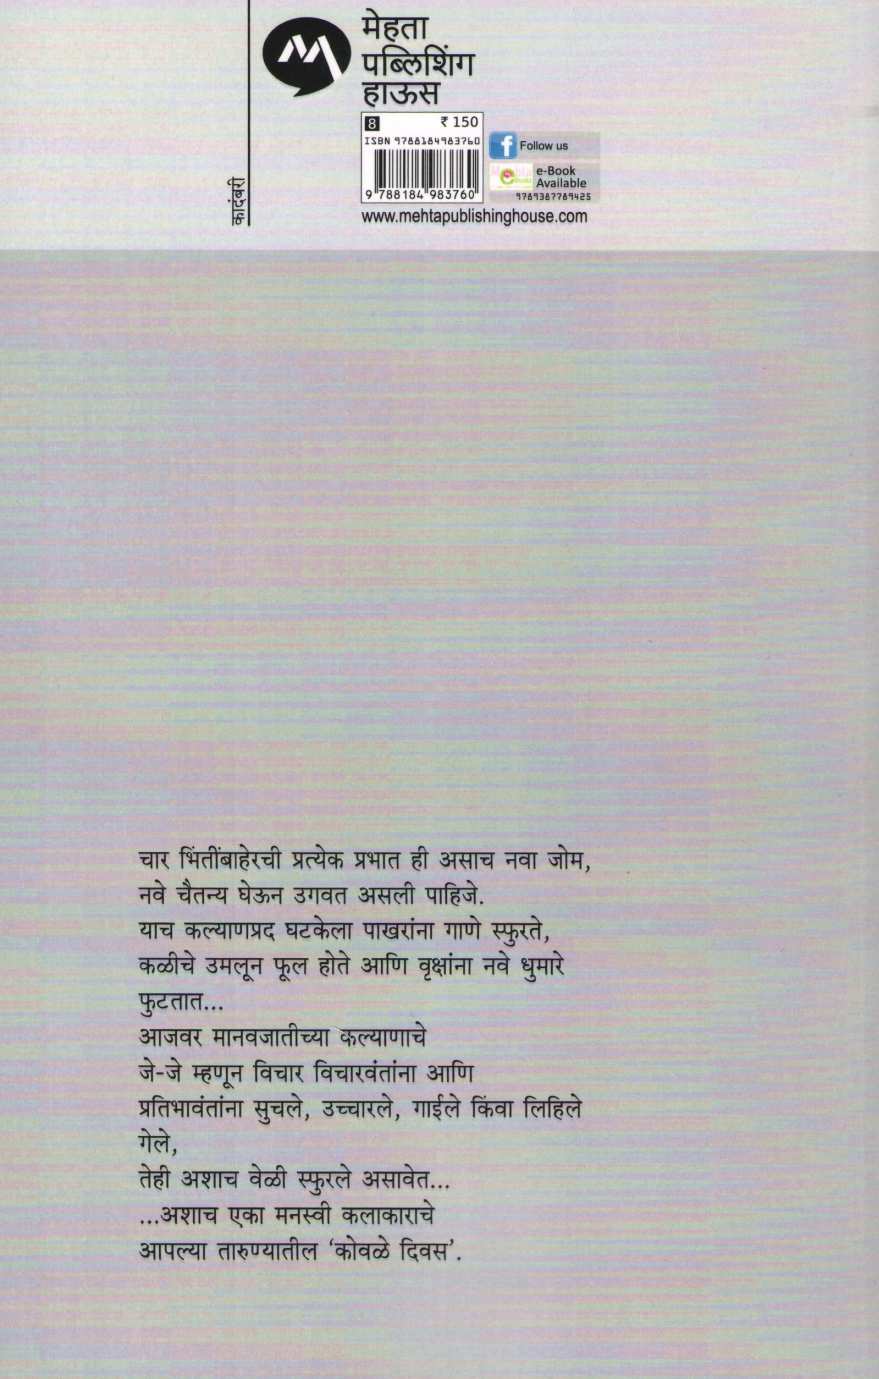 मेहता
पब्लिशिंग
हाऊस
8 ₹ 150
ISBN 9788184983760
9 788184 983760
Follow us
e-Book
Available
9789387789425
www.mehtapublishinghouse.com
कादंबरी
चार भिंतींबाहेरची प्रत्येक प्रभात ही असाच नवा जोम,
नवे चैतन्य घेऊन उगवत असली पाहिजे.
याच कल्याणप्रद घटकेला पाखरांना गाणे स्फुरते,
कळीचे उमलून फूल होते आणि वृक्षांना नवे धुमारे
फुटतात...
आजवर मानवजातीच्या कल्याणाचे
जे-जे म्हणून विचार विचारवंतांना आणि
प्रतिभावंतांना सुचले, उच्चारले, गाईले किंवा लिहिले
गेले,
तेही अशाच वेळी स्फुरले असावेत...
...अशाच एका मनस्वी कलाकाराचे
आपल्या तारुण्यातील ‘कोवळे दिवस’.